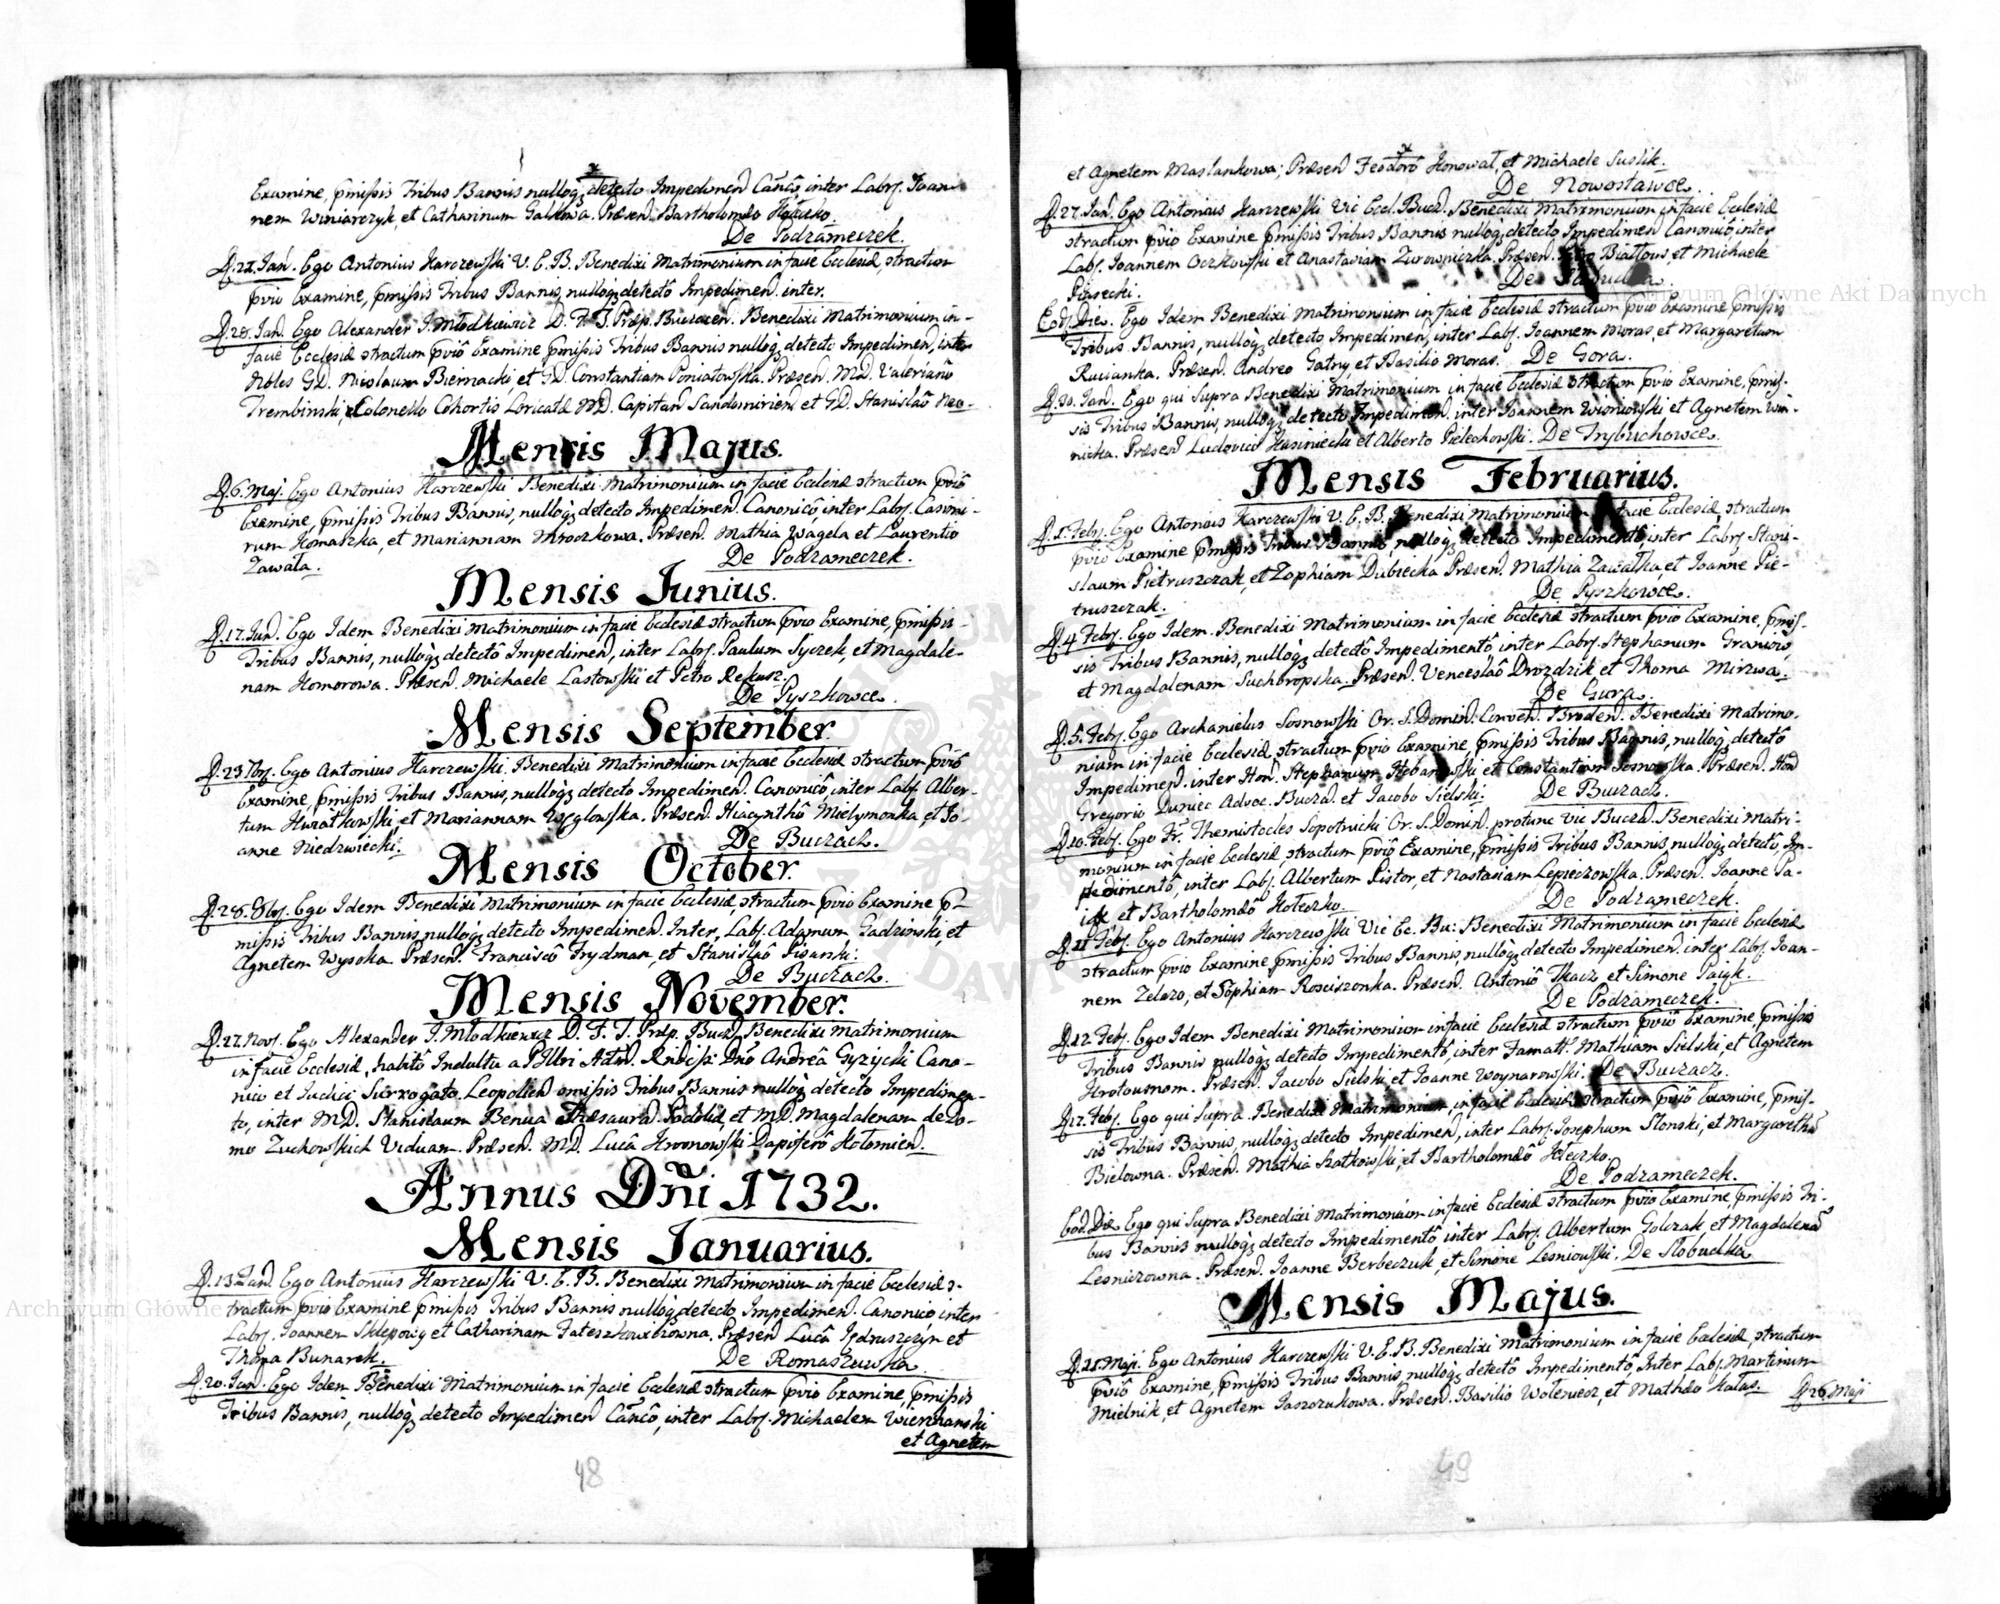 Examine, pmissis Tribus Bannis nulloq; detecto Impedimen Canco inter Labs. Joan
nem Winiarczyk, et Catharinam Galkowa. Præsen. Bartholomæo
De Podzameczek.
D. 22. Jan. Ego Antonius Harczewski V. E. B. Benedixi Matrimonium in facie Ecclesiæ, stractum
pvio Examine, pmissis Tribus Bannis, nulloq; detecto Impedimen. inter.
D. 28. Jan. Ego Alexander J. Młodkiewicz D. F. T. Præp. Buczacen. Benedixi Matrimonium in-
facie Ecclesiæ stractum pvio Examine pmissis Tribus Bannis nulloq; detecto Impedimen, inter
Nbles GD. Nicolaum Biernacki et GD. Constantiam Poniatowska. Præsen. MD. Valeriano
Trembinski, Colonello Cohortis Loricatæ MD. Capitan Sandomirien et GD. Stanislao Neo-
Mensis Majus.
D. 6. Maj. Ego Antonius Harczewski Benedixi Matrimonium in facie Ecclesiæ stractum pvio
Examine, pmissis Tribus Bannis, nulloq; detecto Impedimen. Canonico, inter Labs. Casimi-
rum Homaszka, et Mariannam Mroczkowa. Præsen. Mathia Wagela et Laurentio
Zawała.
De Podzameczek.
Mensis Junius.
D. 17. Jun. Ego Idem Benedixi Matrimonium in facie Ecclesiæ stractum pvio Examine, pmissis
Tribus Bannis, nulloq; detecto Impedimen, inter Labs. Paulum Syczek, et Magdale-
nam Homorowa. Præsen. Michaele Lastowski et Petro Rekusz.
De Pyszkowce.
Mensis September.
D. 23. 7bris. Ego Antonius Harczewski. Benedixi Matrimonium in facie Ecclesiæ stractum pvio
Examine, pmissis Tribus Bannis, nulloq; detecto Impedimen. Canonico inter Labs. Alber-
tum Kwiatkowski, et Mariannam Węglowska. Præsen. Hiacyntho Mielymonka, et Jo-
anne Niedzwiecki.
De Buczacz.
Mensis October.
D. 28. 8bris. Ego Idem Benedixi Matrimonium in facie Ecclesiæ, stractum pvio Examine p-
missis Tribus Bannis, nulloq; detecto Impedimen. Inter, Labs. Adamum Gadzinski, et
Agnetem Wysoka Præsen. Francisco Frydman, et Stanislao Pisarski.
De Buczacz.
Mensis November.
D. 27. Nov. Ego Alexander J. Młodkiewicz D. F. T. Præp. Bucz. Benedixi Matrimonium
in facie Ecclesiæ, habito Indulto a PIllri Adm. Rndissi. Dno Andrea Gyzycki Cano-
nico et Judici Surrogato. Leopolien omissis Tribus Bannis nulloq; detecto Impedimen-
to, inter MD. Stanislaum Benua Thesaura. Podoliæ, et MD. Magdalenam de Do-
mo Zuchowskich Viduam. Præsen. MD. Luca Hronowski Dapifero Kołomien.
Annus Dni 1732.
Mensis Januarius.
D. 13. Jan. Ego Antonius Harczewski V. E. B. Benedixi Matrimonium in facie Ecclesiæ s-
tractum pvio Examine pmissis Tribus Bannis nulloq; detecto Impedimen. Canonico, inter
Labs. Joannem Sklepowy et Catharinam. Præsen Luca Jędruszczyn et
Thoma Bunarek.
De Romaszuwka.
D. 20. Jan. Ego Idem Benedixi Matrimonium in facie Ecclesiæ stractum pvio Examine, pmissis
Tribus Bannis, nulloq; detecto Impedimen Canco, inter Labs. Michaelem Wierzhanski
et Agnetem
48
et Agnetem Maslankowa; Præsen Feodoro Honowal, et Michaele Suslik.
De Nowostawce.
D. 27. Jan. Ego Antonius Harczewski Vic Eccl. Bucz. Benedixi Matrimonium in facie Ecclesiæ
stractum pvio Examine pmissis Tribus Bannis nulloq; detecto Impedimen Canonico inter
Labs. Joannem Oczkowski et Anastasiam Zurowniczka. Præsen. Białłous, et Michaele
Pisrecki.
De
Eod. Die. Ego Idem Benedixi Matrimonium in facie Ecclesiæ stractum pvio Examine pmissis
Tribus Bannis, nulloq; detecto Impedimen, inter Labs. Joannem Moras, et Margaretam
Rucianka. Præsen. Andreo Gatny et Basilio Moras. De Gora.
D. 30. Jan. Ego qui Supra Benedixi Matrimonium in facie Ecclesiæ stractum pvio Examine, pmis-
sis Tribus Bannis, nulloq; detecto Impedimen. inter Joannem Wisniowski et Agnetem Win-
nicka. Præsen Ludovico Hasiniecki et Alberto Pielechowski. De Trybuchowce.
Mensis Februarius.
D. 5. Febr. Ego Antonius Harczewski V. E. B. Benedixi Matrimonium in facie Ecclesiæ, stractum
pvio Examine pmissis Tribus Bannis, nulloq; detecto Impedimento, inter Labs. Stani-
slaum Pietruszczak, et Zophiam Dubiecka Præsen. Mathia Zawalka, et Joanne Pie-
truszczak.
De Pyszkowce.
D. 4. Febr. Ego Idem. Benedixi Matrimonium in facie Ecclesiæ stractum pvio Examine, pmis-
sis Tribus Bannis, nulloq; detecto Impedimento, inter Labs. Stephanum
et Magdalenam Suchoropska. Præsen. Venceslao Drozdzik et Thoma Mirwa.
De Gura.
D. 5. Febr. Ego Archanielus Sosnowski Or. S. Domin. Conven. Broden. Benedixi Matrimo-
nium in facie Ecclesiæ, stractum pvio Examine, pmissis Tribus Bannis, nulloq; detecto
Impedimen. inter Hon. Stephanum et Constantiam Sosnowska. Præsen. Hon
Gregorio Duniec Advoc. Bucza. et Jacobo Sielski.
De Buczacz.
D. 10. Febr. Ego Fr. Themistocles Sopotnicki Or. S. Domin. protunc Vic Bucza. Benedixi Matri-
monium in facie Ecclesiæ, stractum pvio Examine, pmissis Tribus Bannis, nulloq; detecto, Im-
pedimento, inter Labs. Albertum Pistor, et Nastasiam Lepieczowska. Præsen. Joanne Pa-
et Bartholomæo Hoteczko.
De Podzameczek.
D. 11 Febr. Ego Antonius Harczewski Vic Ec. Bu: Benedixi Matrimonium in facie Ecclesiæ
stractum pvio Examine pmissis Tribus Bannis, nulloq; detecto Impedimen. inter Labs. Joan-
nem Zelazo, et Sophiam Rosciszonka. Præsen. Antonio Tkacz et Simone Paigk.
De Podzameczek.
D. 12. Febr. Ego Idem Benedixi Matrimonium in facie Ecclesiæ stractum pvio Examine, pmissis
Tribus Bannis nulloq; detecto Impedimento, inter Famatt. Mathiam Sielski, et Agnetem
Hrotousmom. Præsen. Jacobo Sielski, et Joanne Woynarowski. De Buczacz.
D. 17. Febr. Ego qui Supra. Benedixi Matrimonium, in facie Ecclesiæ stractum pvio Examine, pmis-
sis Tribus Bannis, nulloq; detecto Impedimen, inter Labs. Josephum Słonski, et Margaretha
Bielowna. Præsen. Mathia Szatkowski, et Bartholomæo Hoteczko.
De Podzameczek.
Eod. Die Ego qui Supra Benedixi Matrimonium in facie Ecclesiæ stractum pvio Examine, pmissis Tri-
bus Bannis nulloq; detecto Impedimento inter Labs. Albertum Golczak, et Magdalena
Lesniczowna. Præsen. Joanne Berbeczuk, et Simone Lesniowski. De Słobudka
Mensis Majus.
D. 21. Maji. Ego Antonius Harczewski V. E. B. Benedixi Matrimonium in facie Ecclesiæ, stractum
pvio Examine, pmissis Tribus Bannis, nulloq; detecto Impedimento, Inter Labs. Martinum
Mielnik, et Agnetem Jaszczukowa. Præsen. Basilio Woteniecz, et Mathæo Hałas.
D. 26. Maji
49
Archiwum Główne Akt Dawnych